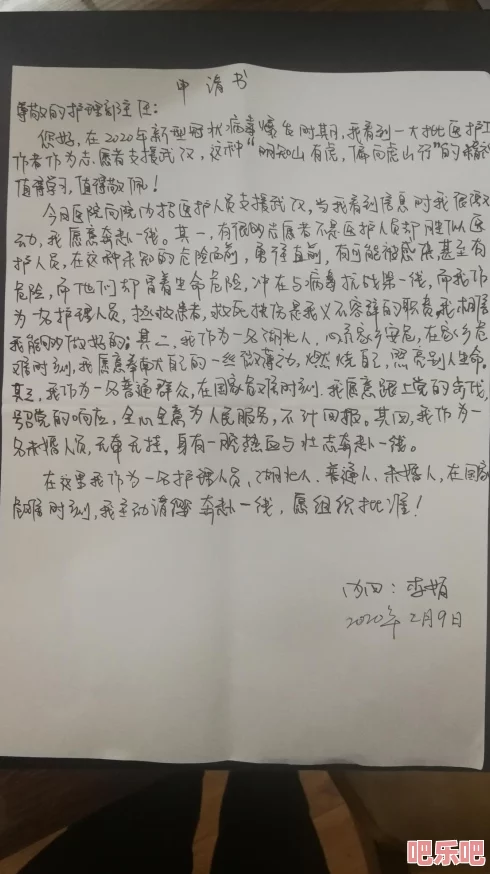 申请书
尊敬的护理部主任:
您好,在2020年新型冠状病毒爆发时期,我看到一大批医护工
作者作为志愿者支援武汉,这种“明知山有虎,偏向虎山行”的精神
值得学习,值得敬佩!
今日医院向院内招医护人员支援武汉,当我看到信息时我很激
动,我愿意奔赴一线。其一,有很多志愿者不是医护人员却胜似医
护人员,在这种未知的危险面前,勇往直前,有可能被感染甚至有
危险,而他们却冒着生命危险,冲在与病毒抗战第一线,而我作
为一名护理人员,拯救患者,救死扶伤是我义不容辞的职责,我相信
我能够做好的;其二,我作为一名湖北人,心系家乡安危,在家乡危
难时刻,我愿意奉献自己的一丝微薄力,燃烧自己,照亮别人生命。
其三,我作为一名普通群众,在国家危难时刻,我愿意跟上党的步伐,
号党的响应,全心全意为人民服务,不计回报。其四,我作为一
名未婚人员,无牵无挂,身有一腔热血与壮志奔赴一线。
在这里我作为一名护理人员、湖北人、普通人、未婚人,在国家
危难时刻,我主动请缨奔赴一线,愿组织批准!
内四:李娟
2020年2月9日
吧乐吧